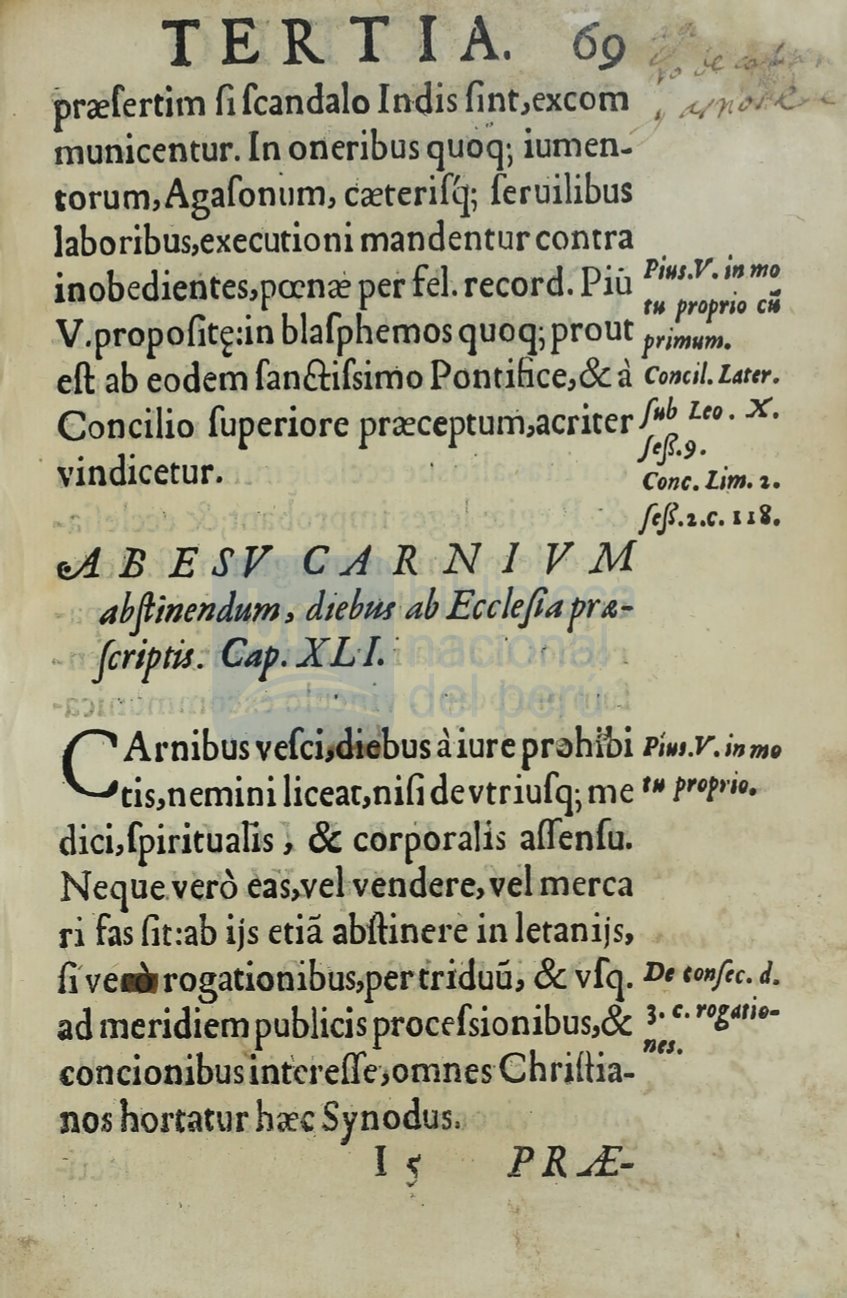 TERTIA. 69
præſertim ſi ſcandalo Indis ſint,excom
municentur. In oneribus quoq; iumen-
torum,Agaſonum, cæteriſq́; ſeruilibus
laboribus,executioni mandentur contra
inobedientes,pœnæ per fel. record. Piũ
V.propoſitę:in blaſphemos quoq; prout
eſt ab eodem ſanctiſsimo Pontifice,& à
Concilio ſuperiore præceptum,acriter
vindicetur.
Pius.V. in mo
tu proprio cũ
primum.
Concil. Later.
ſub Leo. X.
ſeſſ.9.
Conc. Lim. 2.
ſeſſ.2.c. 118.
AB ESV CARNIVM
abſtinendum, diebus ab Eccleſia præ-
ſcriptis. Cap. XLI.
CArnibus veſci,diebus à iure prohibi
tis,nemini liceat,niſi de vtriuſq; me
dici,ſpiritualis, & corporalis aſſenſu.
Neque verò eas,vel vendere,vel merca
ri fas ſit:ab ijs etiã abſtinere in letanijs,
ſi verò rogationibus,per triduũ, & vſq.
ad meridiem publicis proceſsionibus,&
concionibus intereſſe,omnes Chriſtia-
nos hortatur hæc Synodus.
Pius.V. in mo
tu proprio.
De conſec. d.
3. c. rogatio-
nes.
I 5 PRÆ-
nacional
del perú